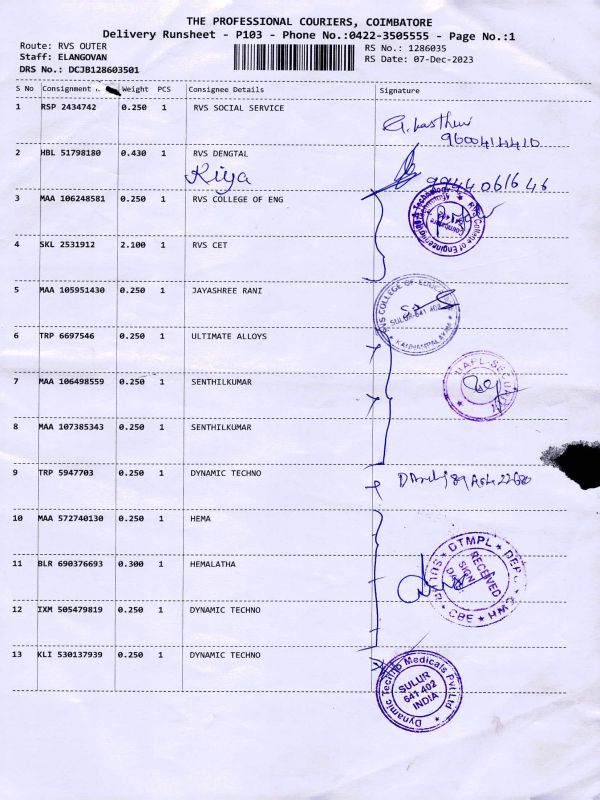 THE PROFESSIONAL COURIERS, COIMBATORE
Delivery Runsheet - P103 - Phone No.:0422-3505555 - Page No.:1
Route: RVS OUTER
Staff: ELANGOVAN
DRS No.: DCJB128603501
RS No.: 1286035
RS Date: 07-Dec-2023
S No Consignment Weight PCS Consignee Details Signature
1 RSP 2434742 0.250 1 RVS SOCIAL SERVICE
9600414410
2 HBL 51798180 0.430 1 RVS DENGTAL
Riya
9944061646
3 MAA 106248581 0.250 1 RVS COLLEGE OF ENG
RVS College of Engineering
4 SKL 2531912 2.100 1 RVS CET
5 MAA 105951430 0.250 1 JAYASHREE RANI
RVS COLLEGE OF EDUC
SULUR-641 402
KANNAMPALAYAM
6 TRP 6697546 0.250 1 ULTIMATE ALLOYS
7 MAA 106498559 0.250 1 SENTHILKUMAR
8 MAA 107385343 0.250 1 SENTHILKUMAR
9 TRP 5947703 0.250 1 DYNAMIC TECHNO
10 MAA 572740130 0.250 1 HEMA
11 BLR 690376693 0.300 1 HEMALATHA
DTMPL
RECEIVED
SIGN
CBE
12 IXM 505479819 0.250 1 DYNAMIC TECHNO
13 KLI 530137939 0.250 1 DYNAMIC TECHNO
Dynamic Techno Medicals Pvt Ltd
SULUR
641 402
INDIA